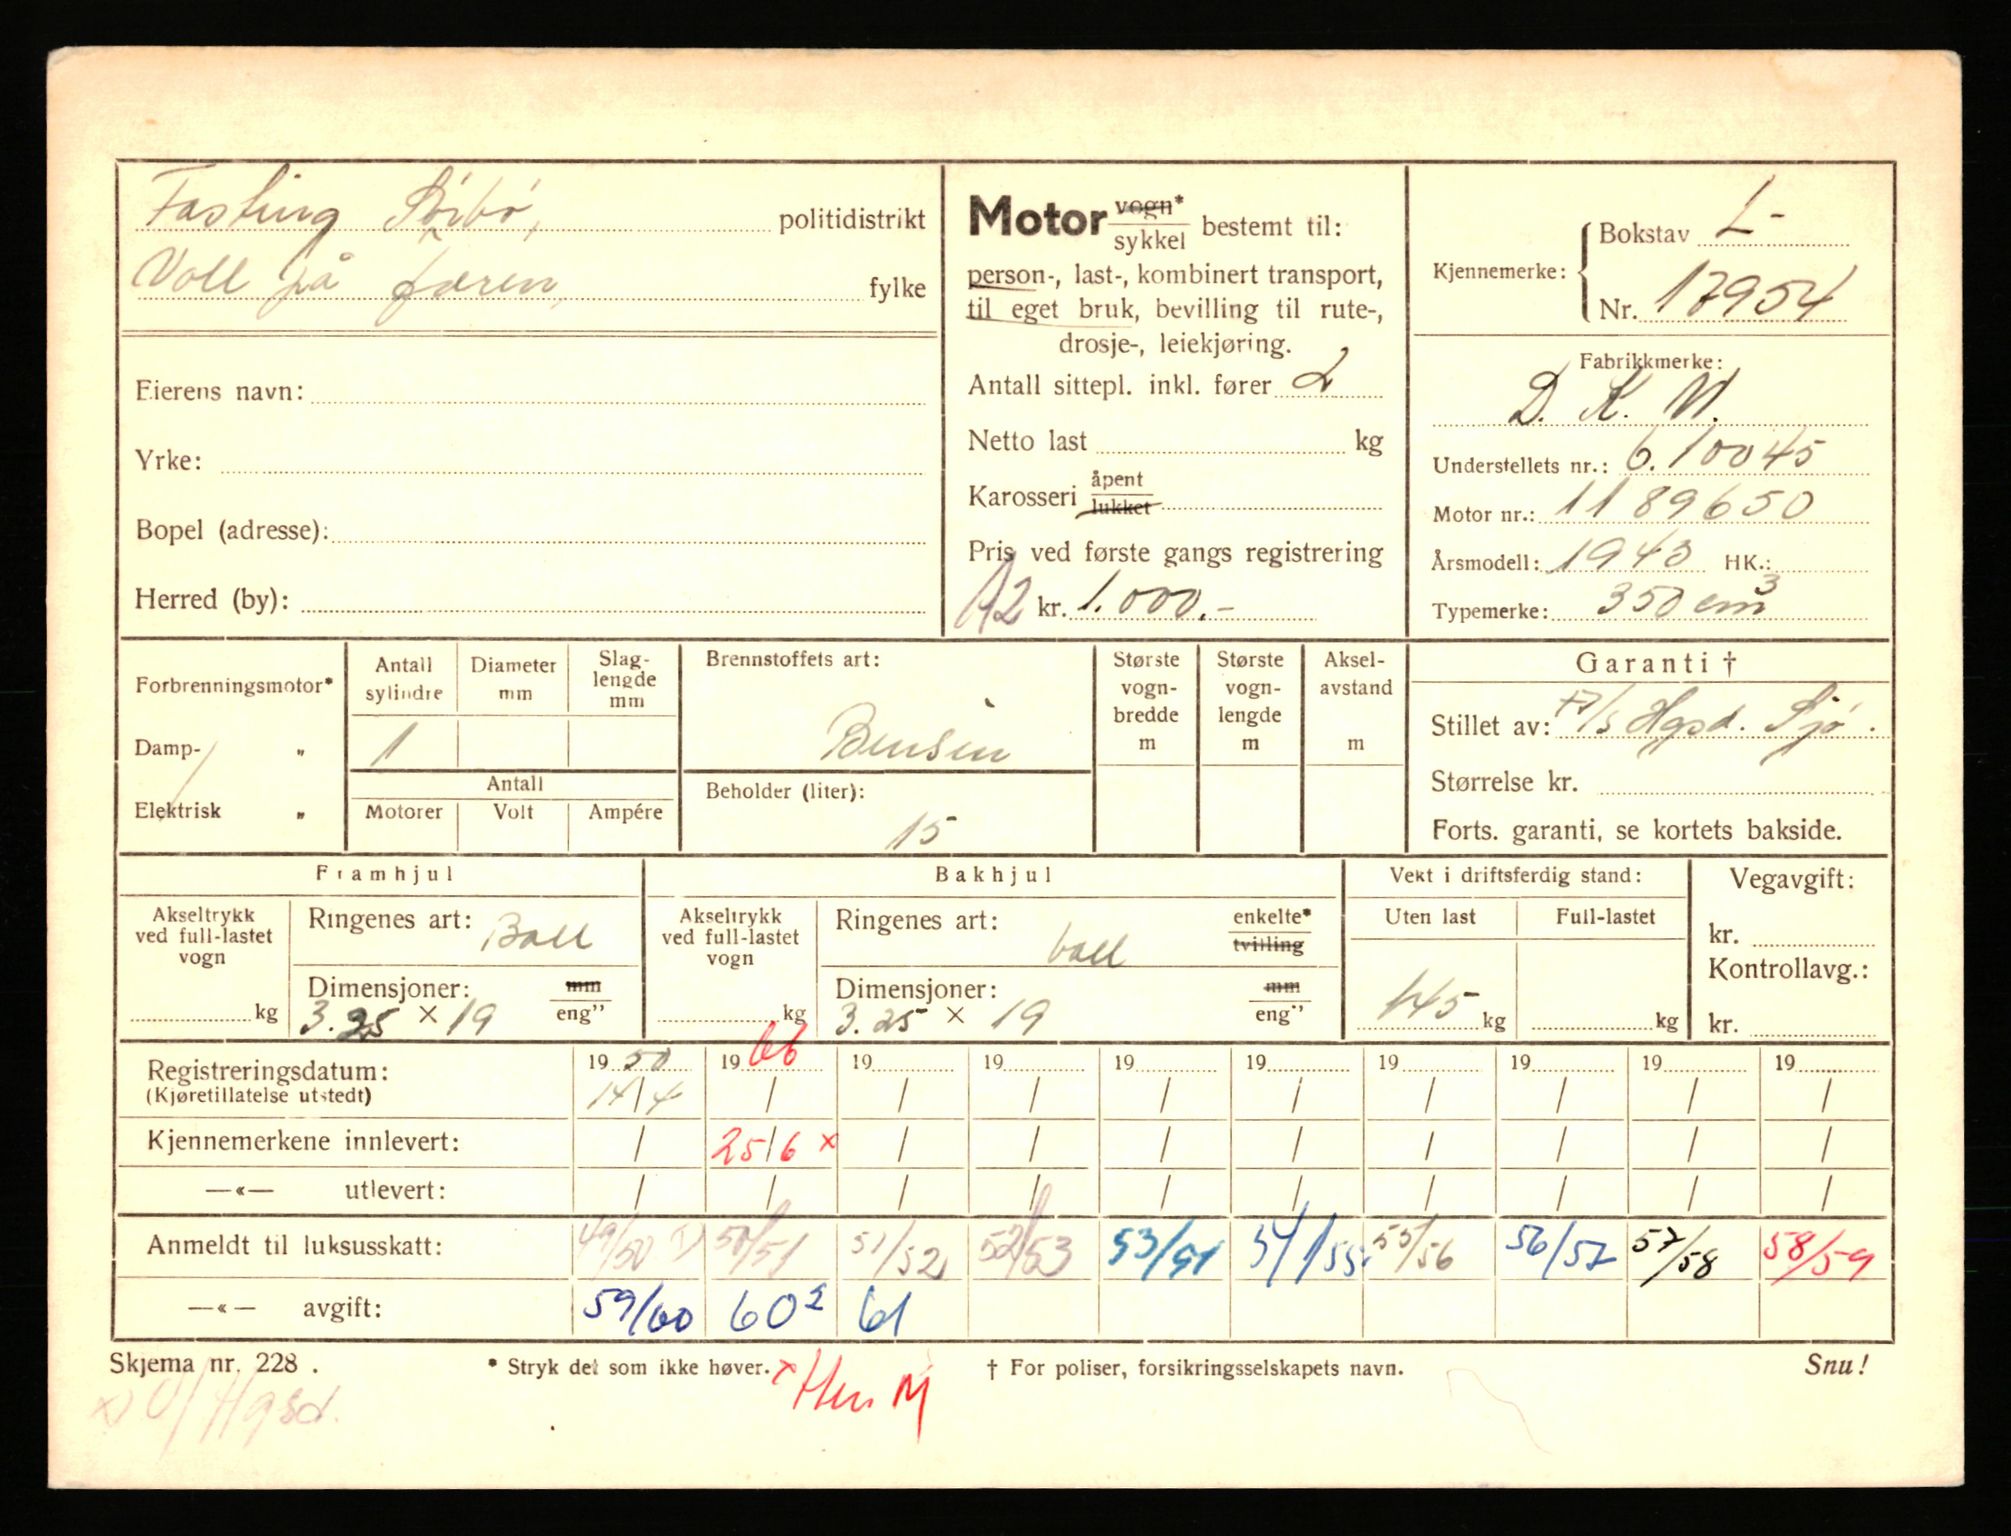 Fasting Sörbö, politidistrikt
Voll på Jæren, fylke
Eierens navn:
Yrke:
Bopel (adresse):
Herred (by):
Motor vogn* / sykkel bestemt til:
person-, last-, kombinert transport,
til eget bruk, bevilling til rute-,
drosje-, leiekjøring.
Antall sittepl. inkl. fører 2
Netto last kg
Karosseri åpent / lukket
Pris ved første gangs registrering
A2 kr. 1.000.-
Kjennemerke: Bokstav L-
Nr. 17954
Fabrikkmerke:
D. K. W.
Understellets nr.: 6.10045
Motor nr.: 1189650
Årsmodell: 1943 HK.:
Typemerke: 350 cm³
Forbrenningsmotor*
Damp- „
Elektrisk „
Antall sylindre
Diameter mm
Slag-lengde mm
1
Antall
Motorer Volt Ampére
Brennstoffets art:
Bensin
Beholder (liter):
15
Største vogn-bredde m
Største vogn-lengde m
Aksel-avstand m
Garanti †
Stillet av: Hgsd. Sjö.
Størrelse kr.
Forts. garanti, se kortets bakside.
Framhjul
Akseltrykk ved full-lastet vogn
kg
Ringenes art: Ball
Dimensjoner: mm / eng"
3.25 × 19
Bakhjul
Akseltrykk ved full-lastet vogn
kg
Ringenes art: ball
enkelte* / tvilling
Dimensjoner: mm / eng"
3.25 × 19
Vekt i driftsferdig stand:
Uten last Full-lastet
145 kg kg
Vegavgift:
kr.
Kontrollavg.:
kr.
Registreringsdatum: 1950 1966 19 19 19 19 19 19 19 19
(Kjøretillatelse utstedt) 14/4 / / / / / / / / /
Kjennemerkene innlevert: / 25/6 x / / / / / / / /
—«— utlevert: / / / / / / / / / /
Anmeldt til luksusskatt: 49/50 50/51 51/52 52/53 53/54 54/55 55/56 56/57 57/58 58/59
—«— avgift: 59/60 60² 61
Skjema nr. 228 . * Stryk det som ikke høver. x † For poliser, forsikringsselskapets navn. Snu!
Hgsd.